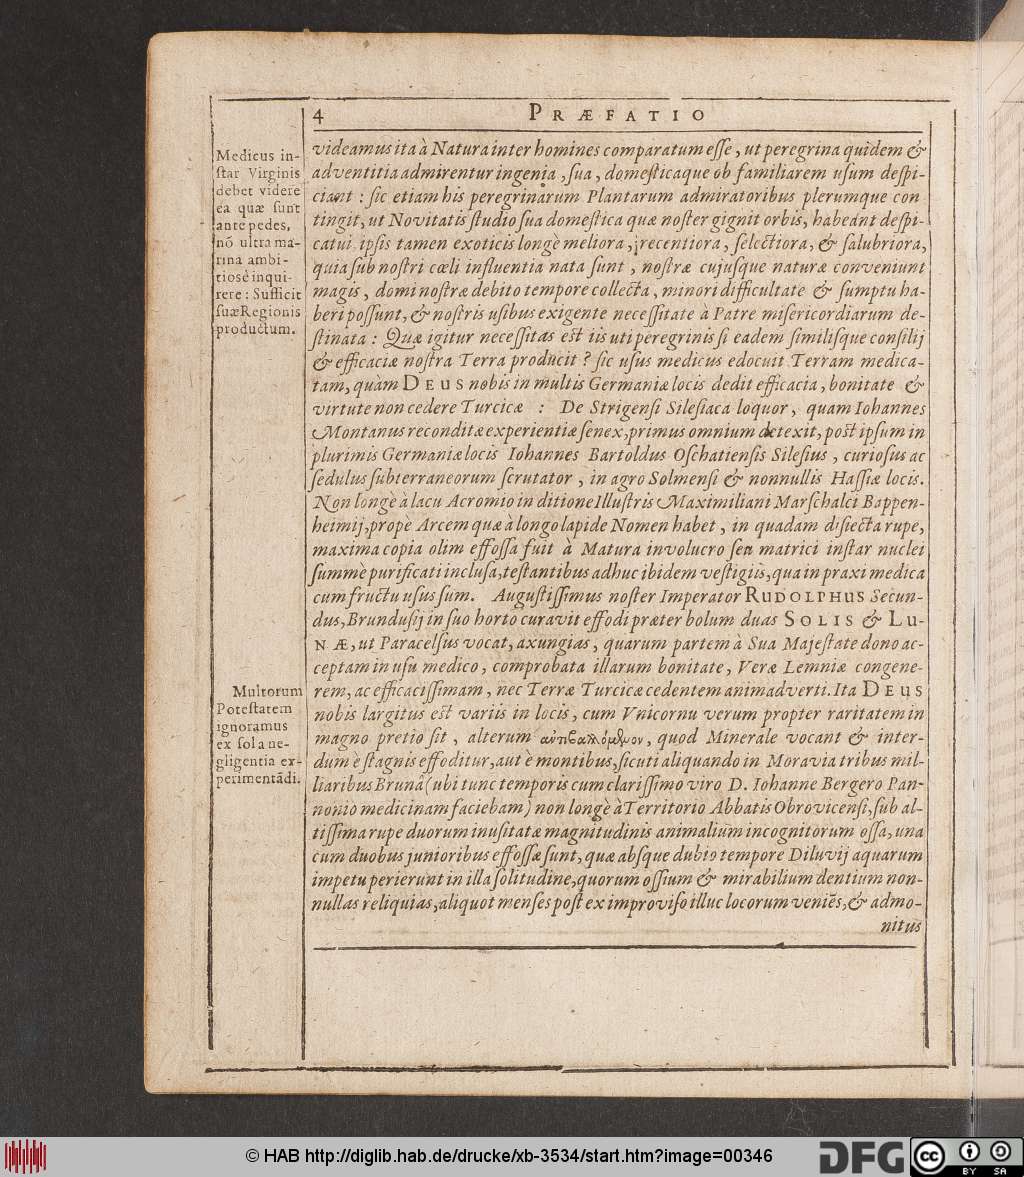 4 PRÆFATIO
Medicus in-
ſtar Virginis
debet videre
ea quæ ſunt
ante pedes,
nō ultra ma-
rina ambi-
tiosè inqui-
rere: Sufficit
ſuæ Regionis
productum.
videamus ita à Natura inter homines comparatum eſſe, ut peregrina quidem &
adventitia admirentur ingenia, ſua, domeſticaque ob familiarem uſum deſpi-
ciant: ſic etiam his peregrinarum Plantarum admiratoribus plerumque con
tingit, ut Novitatis ſtudio ſua domeſtica quæ noſter gignit orbis, habeant deſpi-
catui. ipſis tamen exoticis longè meliora, recentiora, ſelectiora, & ſalubriora,
quia ſub noſtri cœli influentia nata ſunt, noſtræ cujuſque naturæ conveniunt
magis, domi noſtræ debito tempore collecta, minori difficultate & ſumptu ha-
beri poſſunt, & noſtris uſibus exigente neceſſitate à Patre miſericordiarum de-
ſtinata: Quæ igitur neceſſitas eſt iis uti peregrinis ſi eadem ſimiliſque conſilij
& efficaciæ noſtra Terra producit? ſic uſus medicus edocuit Terram medica-
tam, quàm DEUS nobis in multis Germaniæ locis dedit efficacia, bonitate &
virtute non cedere Turcicæ: De Strigenſi Sileſiaca loquor, quam Iohannes
Montanus reconditæ experientiæ ſenex, primus omnium detexit, poſt ipſum in
plurimis Germaniæ locis Iohannes Bartoldus Oſchatienſis Sileſius, curioſus ac
ſedulus ſubterraneorum ſcrutator, in agro Solmenſi & nonnullis Haſſiæ locis.
Non longè à lacu Acromio in ditione Illuſtris Maximiliani Marſchalci Bappen-
heimij, propè Arcem quæ à longo lapide Nomen habet, in quadam disiecta rupe,
maxima copia olim effoſſa fuit à Matura involucro ſeu matrici inſtar nuclei
ſummè purificati incluſa, teſtantibus adhuc ibidem veſtigiis, qua in praxi medica
cum fructu uſus ſum. Auguſtiſſimus noſter Imperator RUDOLPHUS Secun-
dus, Brunduſij in ſuo horto curavit effodi præter bolum duas SOLIS & LU-
NÆ, ut Paracelſus vocat, axungias, quarum partem à Sua Majeſtate dono ac-
ceptam in uſu medico, comprobata illarum bonitate, Veræ Lemniæ congene-
rem, ac efficaciſſimam, nec Terræ Turcicæ cedentem animadverti. Ita DEUS
nobis largitus eſt variis in locis, cum Vnicornu verum propter raritatem in
magno pretio ſit, alterum quod Minerale vocant & inter-
dum è ſtagnis effoditur, aut è montibus, ſicuti aliquando in Moravia tribus mil-
liaribus Brunâ (ubi tunc temporis cum clariſſimo viro D. Iohanne Bergero Pan-
nonio medicinam faciebam) non longè à Territorio Abbatis Obrovicenſi, ſub al-
tiſſima rupe duorum inuſitatæ magnitudinis animalium incognitorum oſſa, una
cum duobus junioribus effoſſæ ſunt, quæ abſque dubio tempore Diluvij aquarum
impetu perierunt in illa ſolitudine, quorum oſſium & mirabilium dentium non-
nullas reliquias, aliquot menſes poſt ex improviſo illuc locorum veniēs, & admo-
nitus
Multorum
Poteſtatem
ignoramus
ex ſola ne-
gligentia ex-
perimentādi.
© HAB http://diglib.hab.de/drucke/xb-3534/start.htm?image=00346
DFG
cc
BY SA